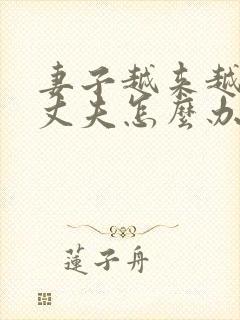 妻子越来越
丈夫怎麼办
蓮子舟